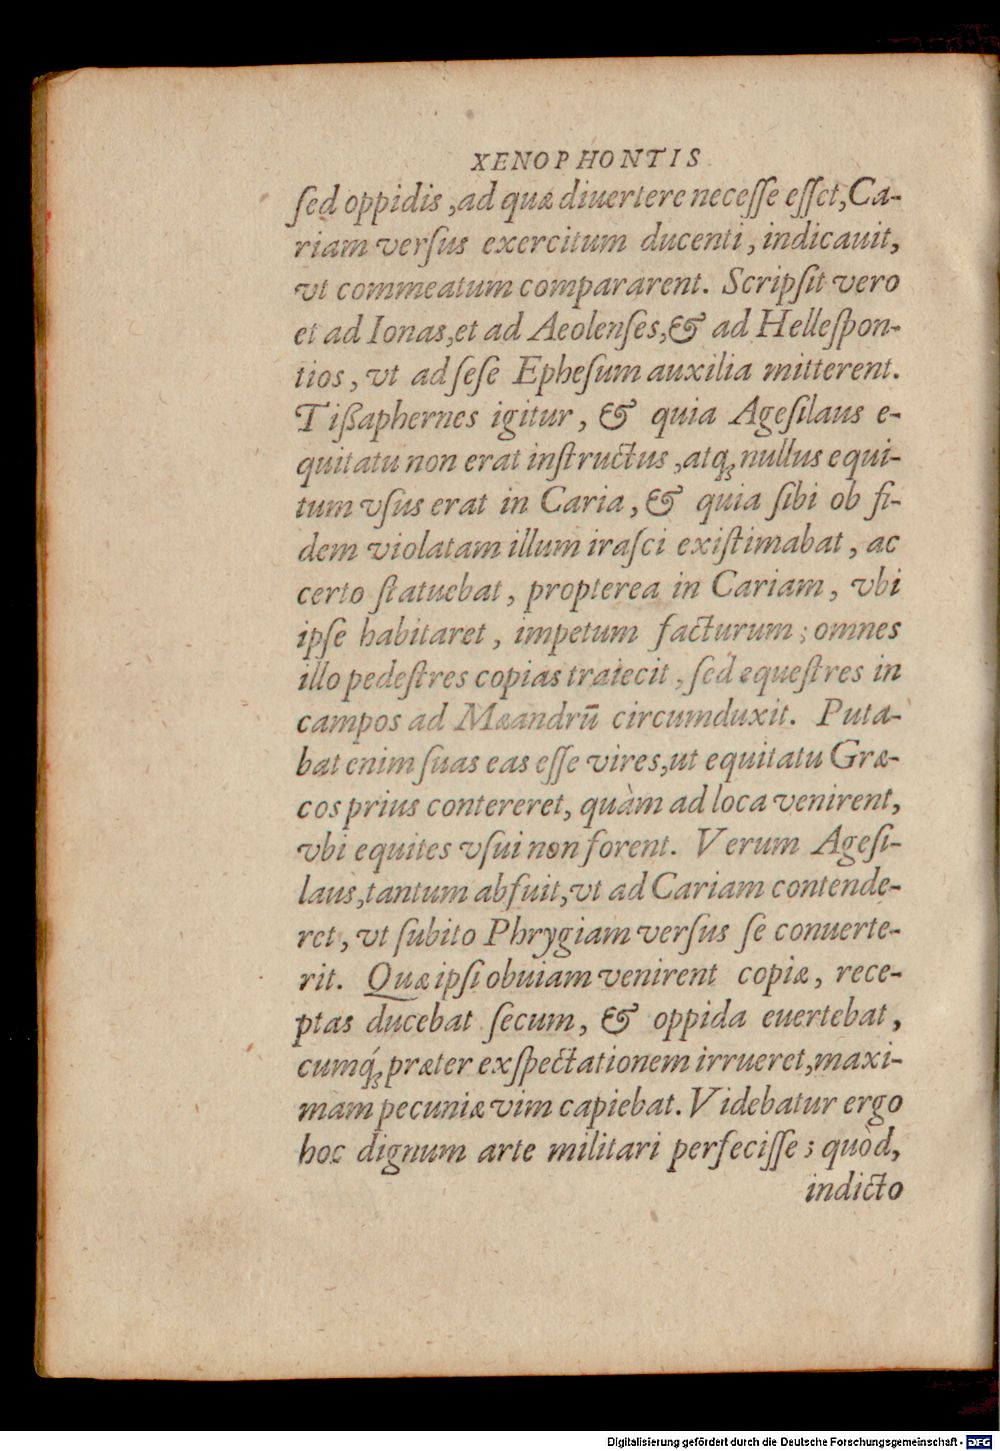 XENOPHONTIS
ſed oppidis, ad quæ diuertere neceſſe eſſet, Ca-
riam verſus exercitum ducenti, indicauit,
vt commeatum compararent. Scripſit vero
et ad Ionas, et ad Aeolenſes, & ad Helleſpon-
tios, vt ad ſeſe Epheſum auxilia mitterent.
Tißaphernes igitur, & quia Ageſilaus e-
quitatu non erat inſtructus, atq; nullus equi-
tum vſus erat in Caria, & quia ſibi ob fi-
dem violatam illum iraſci exiſtimabat, ac
certo ſtatuebat, propterea in Cariam, vbi
ipſe habitaret, impetum facturum; omnes
illo pedeſtres copias traiecit, ſed equeſtres in
campos ad Mæandrū circumduxit. Puta-
bat enim ſuas eas eſſe vires, ut equitatu Græ-
cos prius contereret, quàm ad loca venirent,
vbi equites vſui non forent. Verum Ageſi-
laus, tantum abfuit, vt ad Cariam contende-
ret, vt ſubito Phrygiam verſus ſe conuerte-
rit. Quæ ipſi obuiam venirent copiæ, rece-
ptas ducebat ſecum, & oppida euertebat,
cumq́; præter exſpectationem irrueret, maxi-
mam pecuniæ vim capiebat. Videbatur ergo
hoc dignum arte militari perfeciſſe; quòd,
indicto
Digitalisierung gefördert durch die Deutsche Forschungsgemeinschaft - DFG